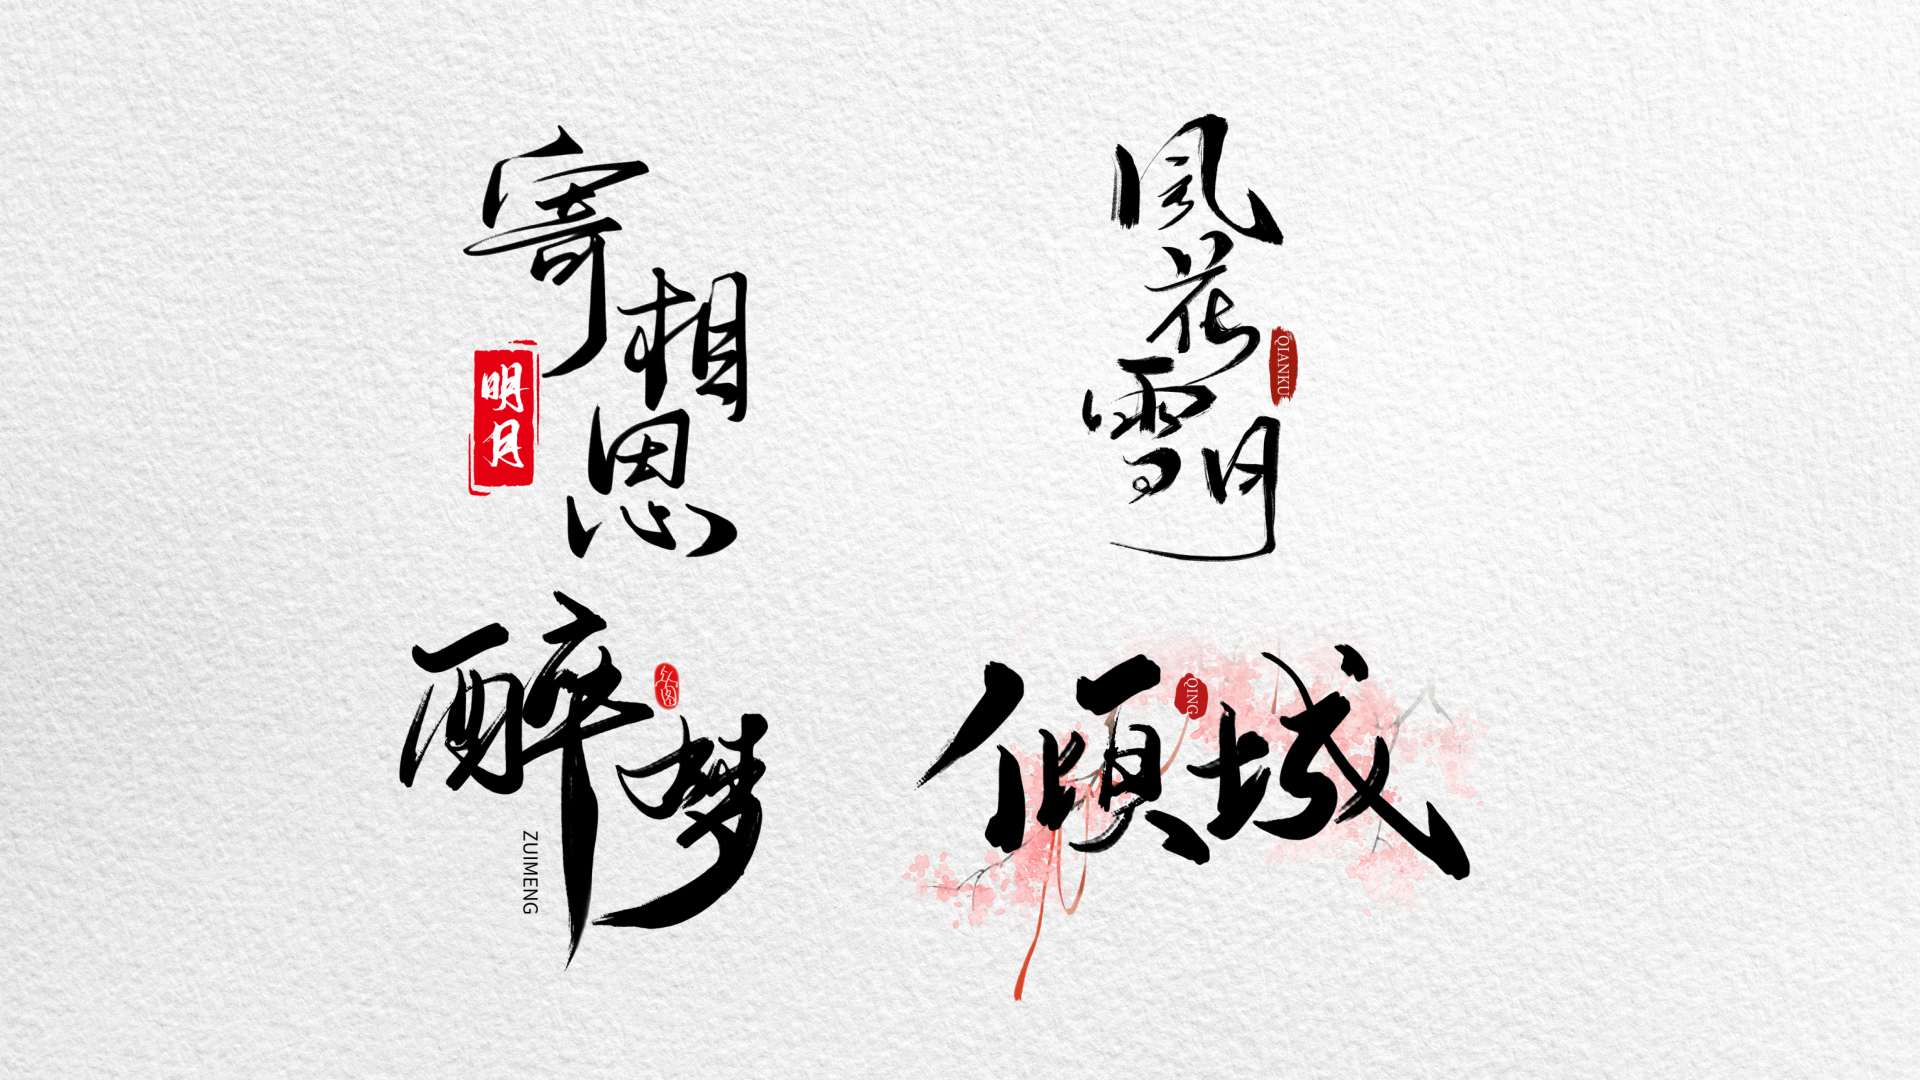 寄相思
明月
風花雪月
QIANKU
醉梦
ZUIMENG
倾城
QING